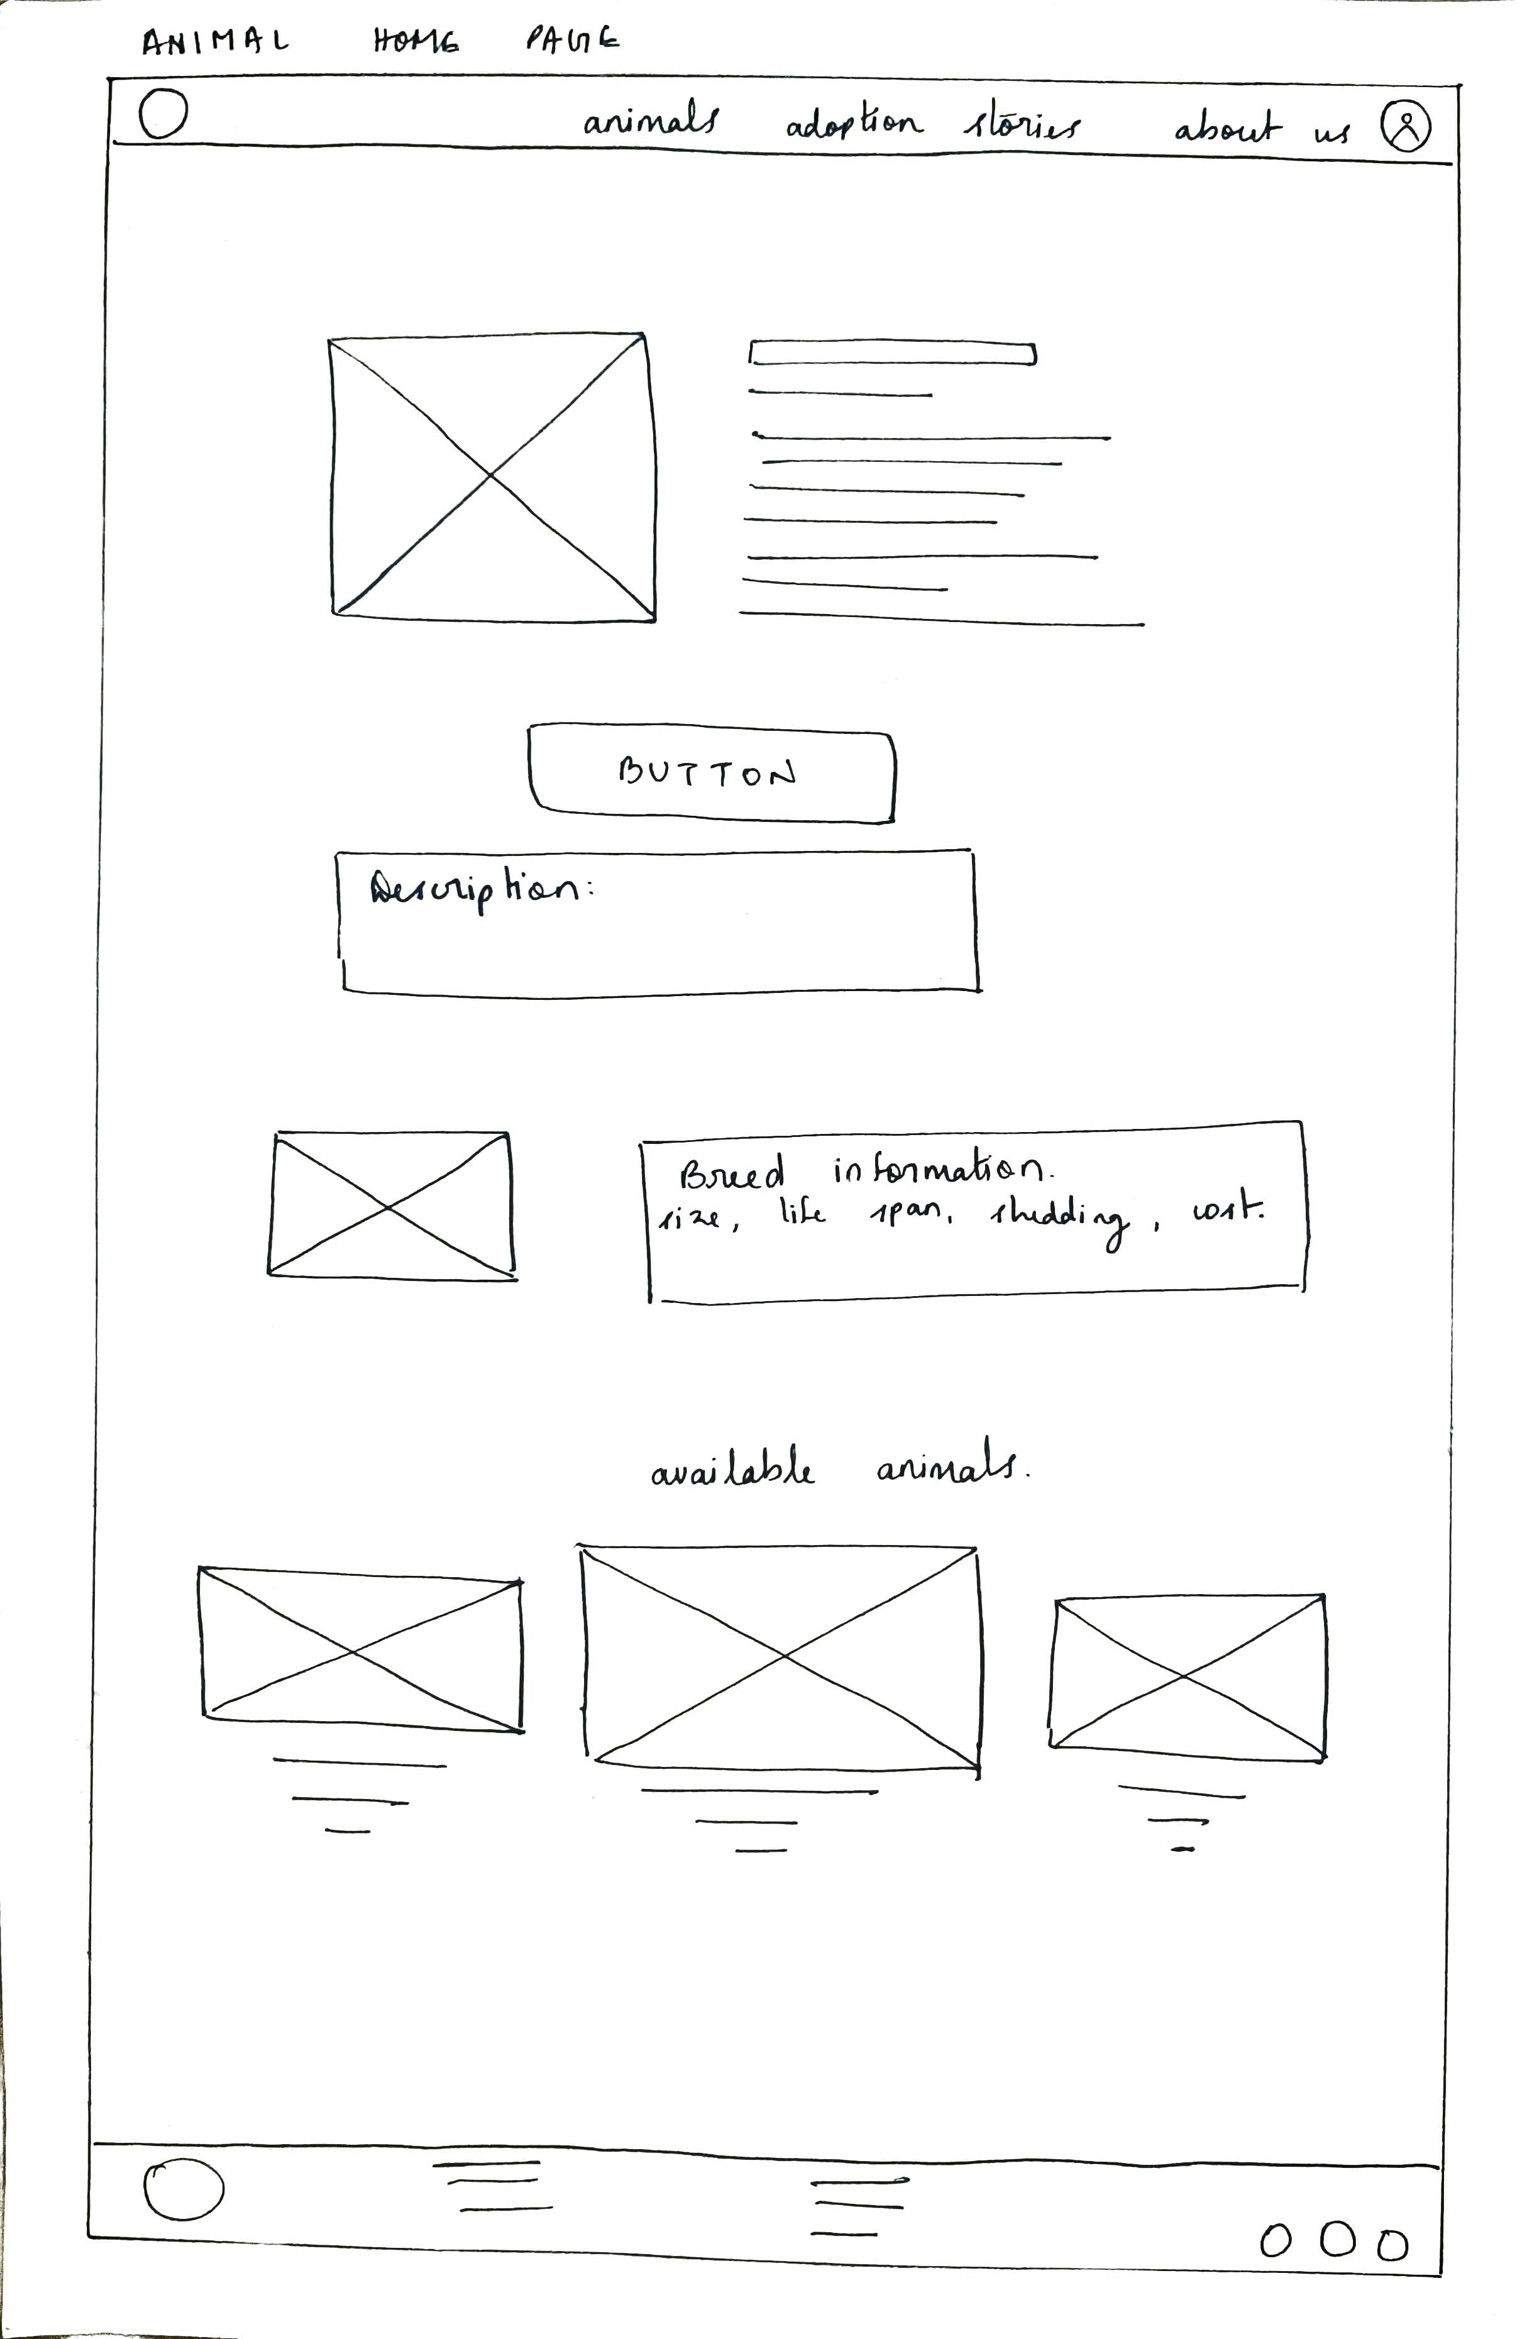 ANIMAL HOME PAGE
animals adoption stories about us
BUTTON
Description:
Breed information.
size, life span, shedding, cost.
available animals.